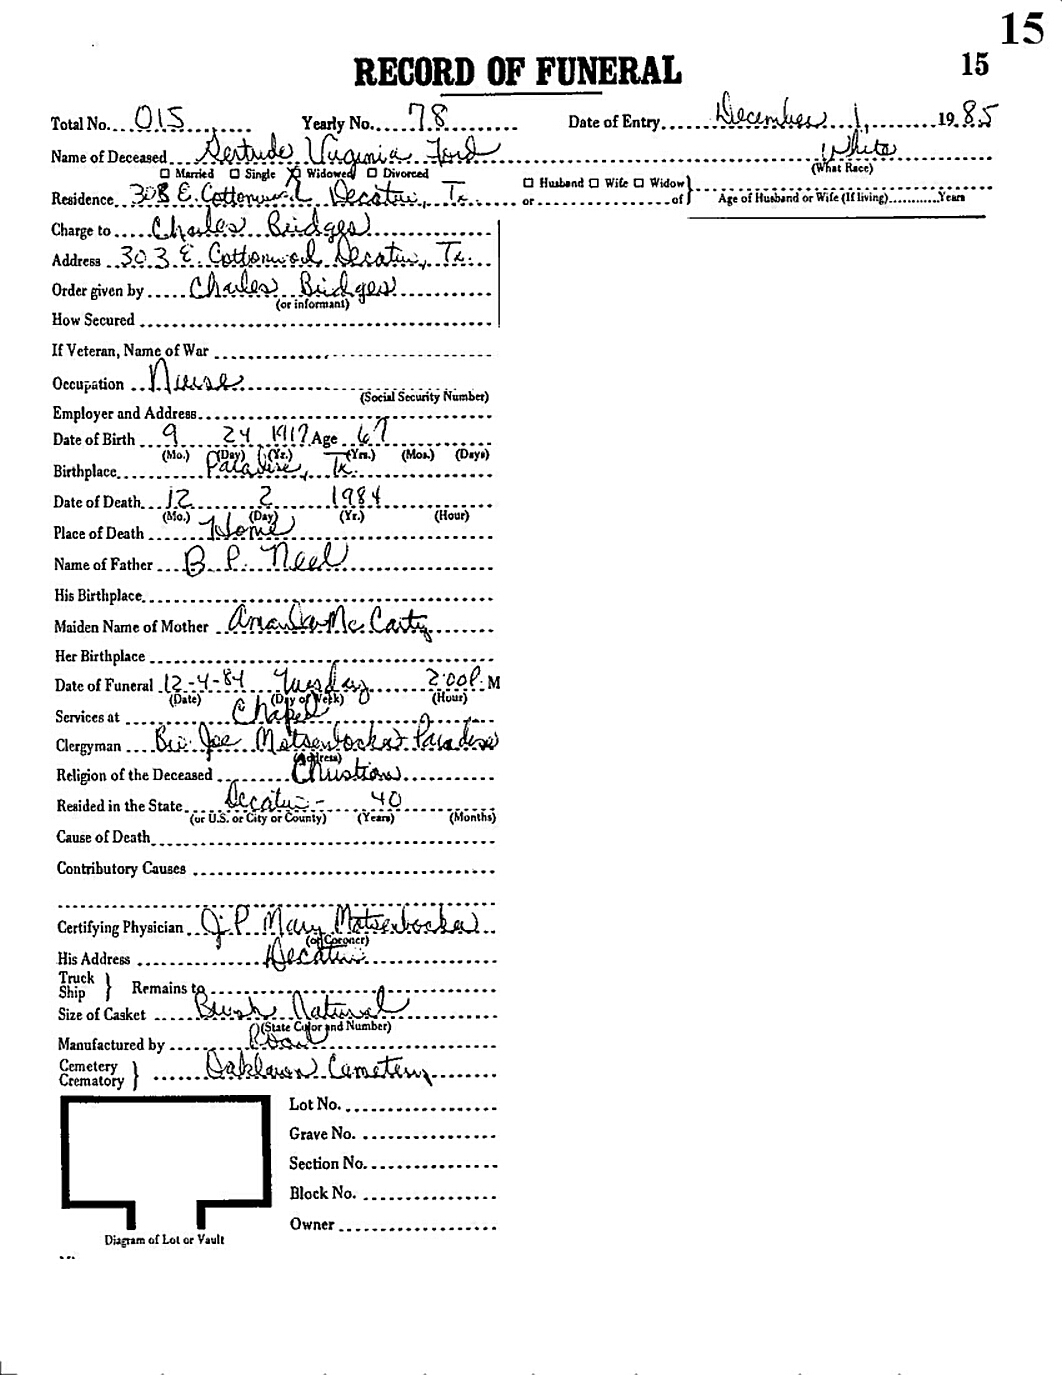 15
15
RECORD OF FUNERAL
Total No. 015 Yearly No. 78 Date of Entry December 1, 1985
Name of Deceased Gertrude Virginia Ford White
☐ Married ☐ Single ☒ Widowed ☐ Divorced (What Race)
☐ Husband ☐ Wife ☐ Widow
Residence 308 E. Cottonwood Decatur, Tx. or of Age of Husband or Wife (If living) Years
Charge to Charles Bridges
Address 303 E. Cottonwood, Decatur, Tx.
Order given by Charles Bridges
(or informant)
How Secured
If Veteran, Name of War
Occupation Nurse
(Social Security Number)
Employer and Address
Date of Birth 9 24 1917 Age 67
(Mo.) (Day) (Yr.) (Yrs.) (Mos.) (Days)
Birthplace Paradise, Tx.
Date of Death 12 2 1984
(Mo.) (Day) (Yr.) (Hour)
Place of Death Home
Name of Father B. P. Neel
His Birthplace
Maiden Name of Mother Amanda McCarty
Her Birthplace
Date of Funeral 12-4-84 Tuesday 2:00 P. M
(Date) (Day of Week) (Hour)
Services at Chapel
Clergyman Bro. Joe Matsenbocker Paradise
(Address)
Religion of the Deceased Christian
Resided in the State Decatur - 40
(or U.S. or City or County) (Years) (Months)
Cause of Death
Contributory Causes
Certifying Physician J.P. Mary Motsenbocker
(or Coroner)
His Address Decatur
Truck
Ship } Remains to
Size of Casket Brush Natural
(State Color and Number)
Manufactured by
Cemetery
Crematory } Oaklawn Cemetery
Lot No.
Grave No.
Section No.
Block No.
Owner
Diagram of Lot or Vault